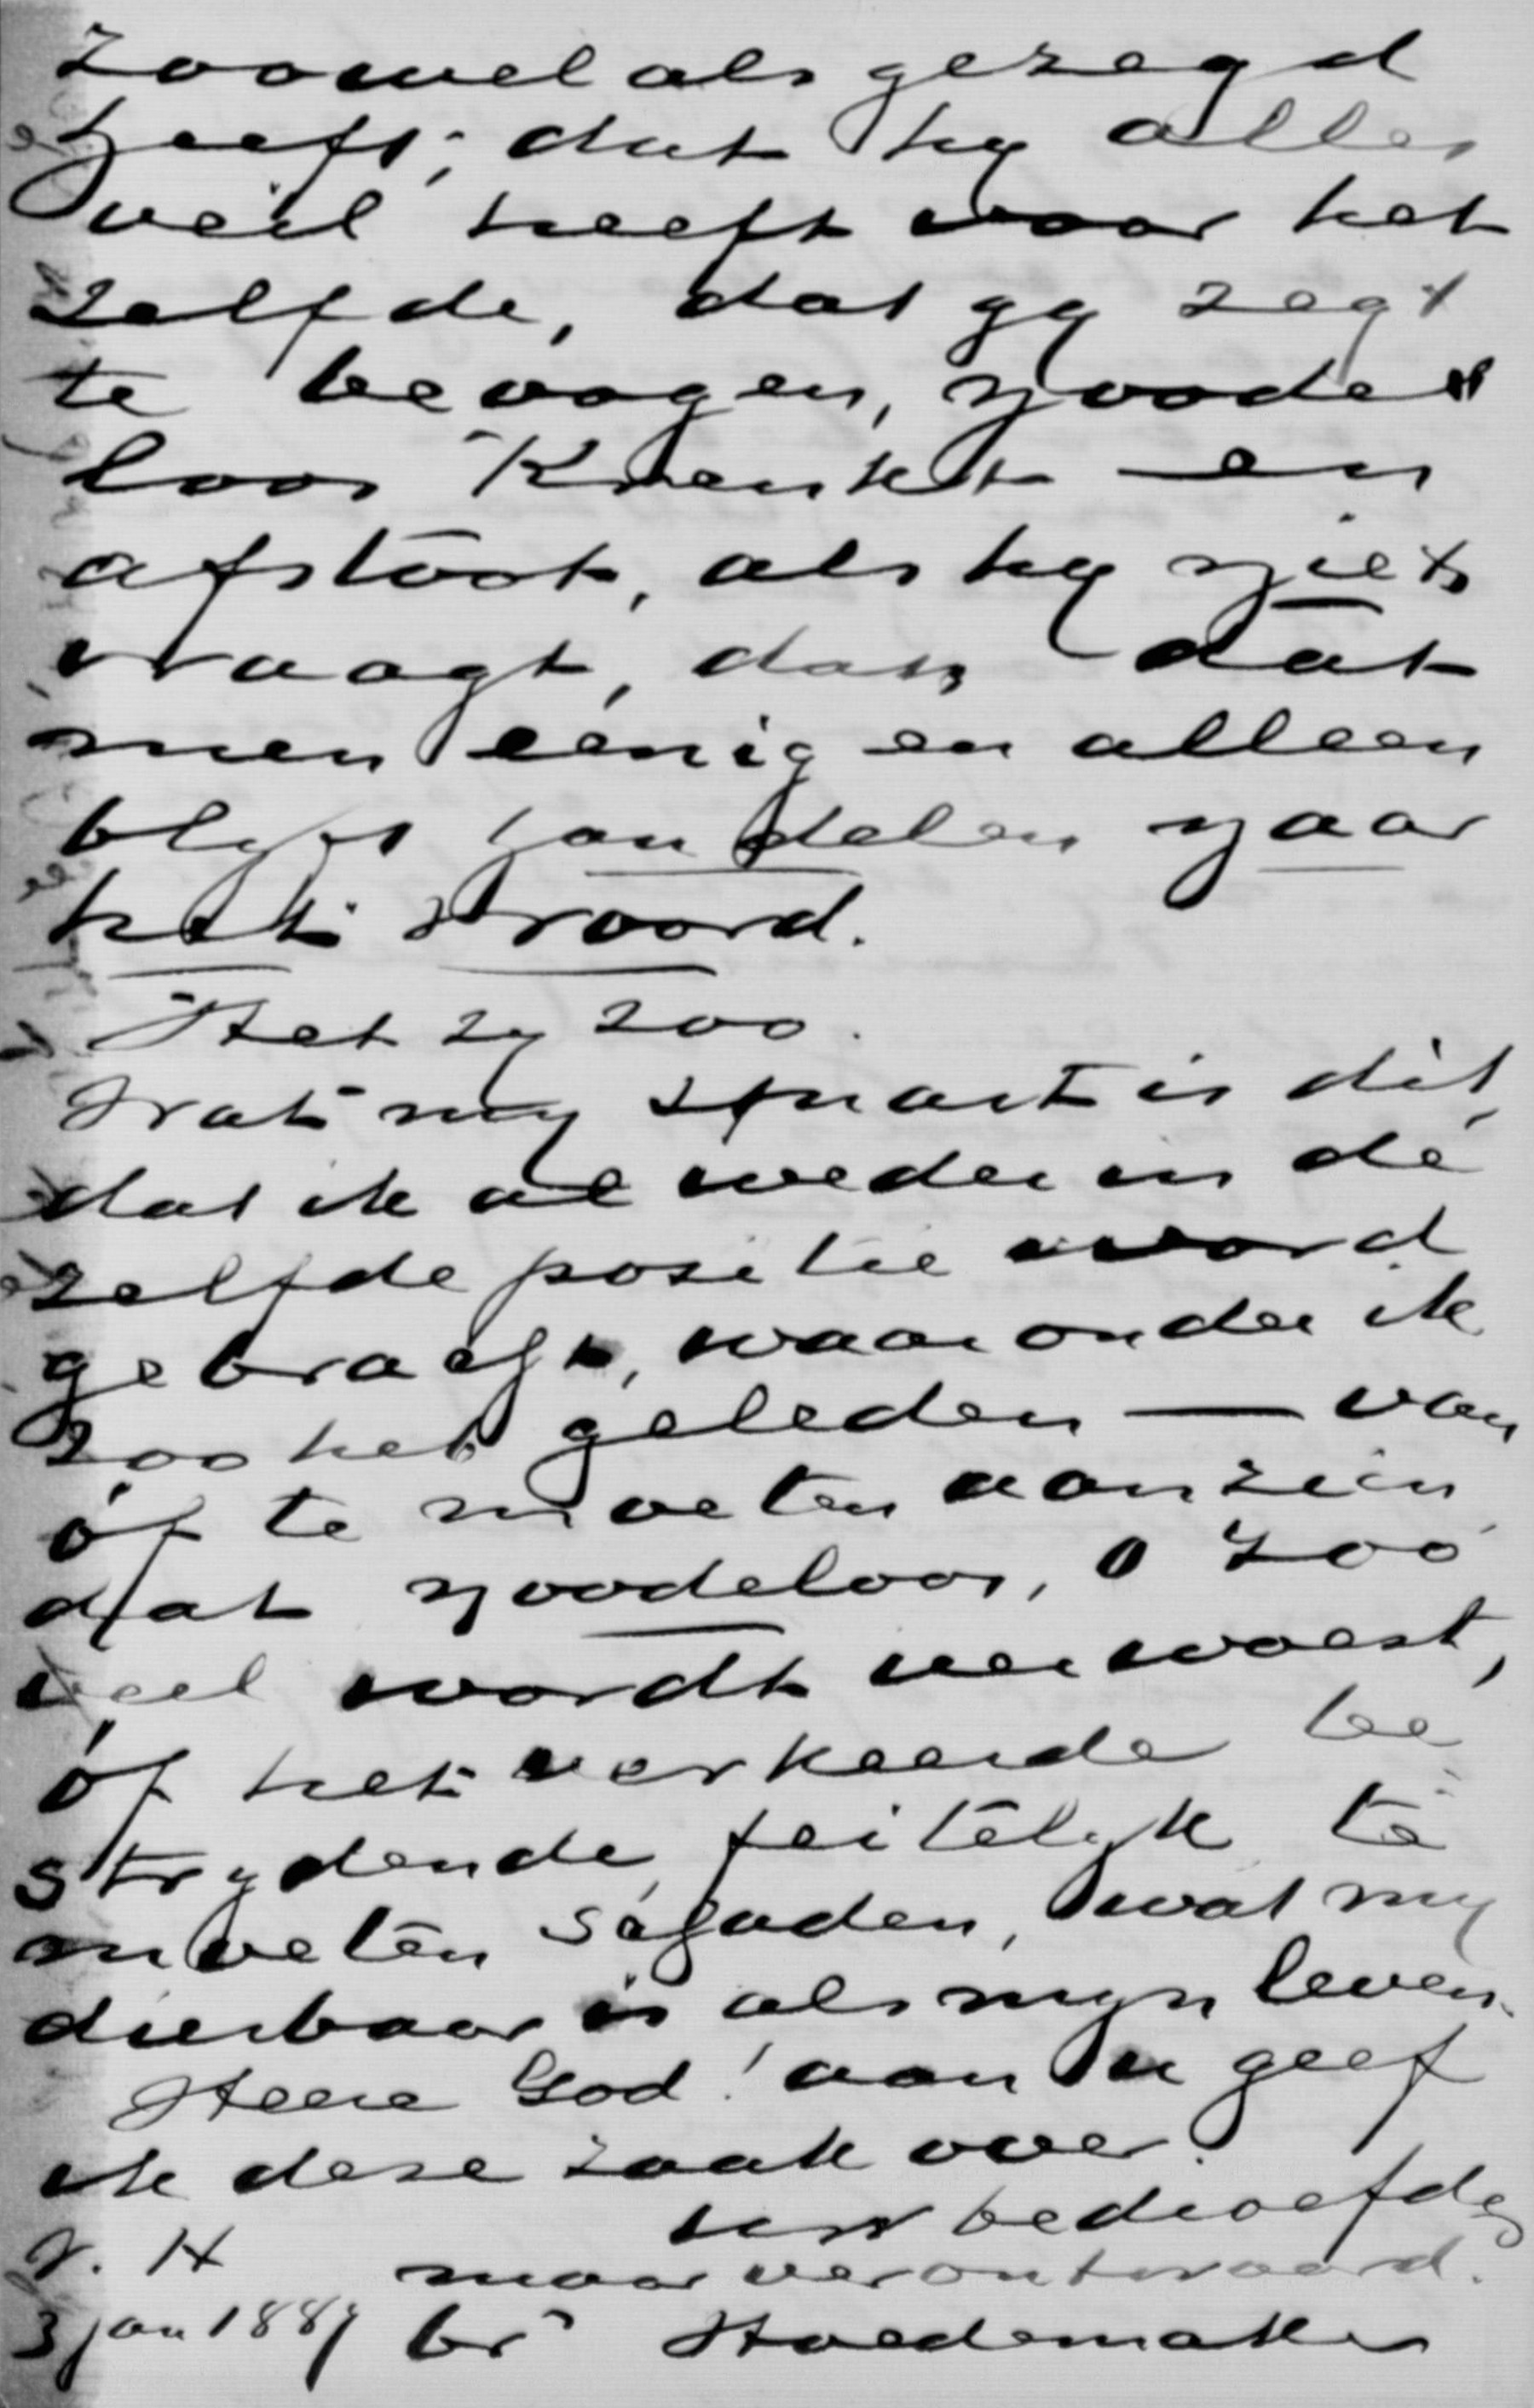 zoowel als gezegd
heeft, dat hy alles
veil heeft voor het
zelfde, dat gy zegt
te beoogen, noode
loos krenkt en
afstoot, als hy niets
vraagt, dan dat
men éénig en alleen
blyft handelen naar
het woord.
Het zy zoo.
Wat my smart is dit,
dat ik al weder in de
zelfde positie word
gebracht, waaronder ik
zoo heb geleden — van
óf te moeten aanzien
dat noodeloos, o zoo
veel wordt verwoest,
óf het verkeerde be
strydende, feitelyk te
moeten schaden, wat my
dierbaar is als myn leven.
Heere God! aan U geef
ik deze zaak over.
Uw bedroefde
maar verontwaard.
br Hoedemaker
V. H
3 jan 1887